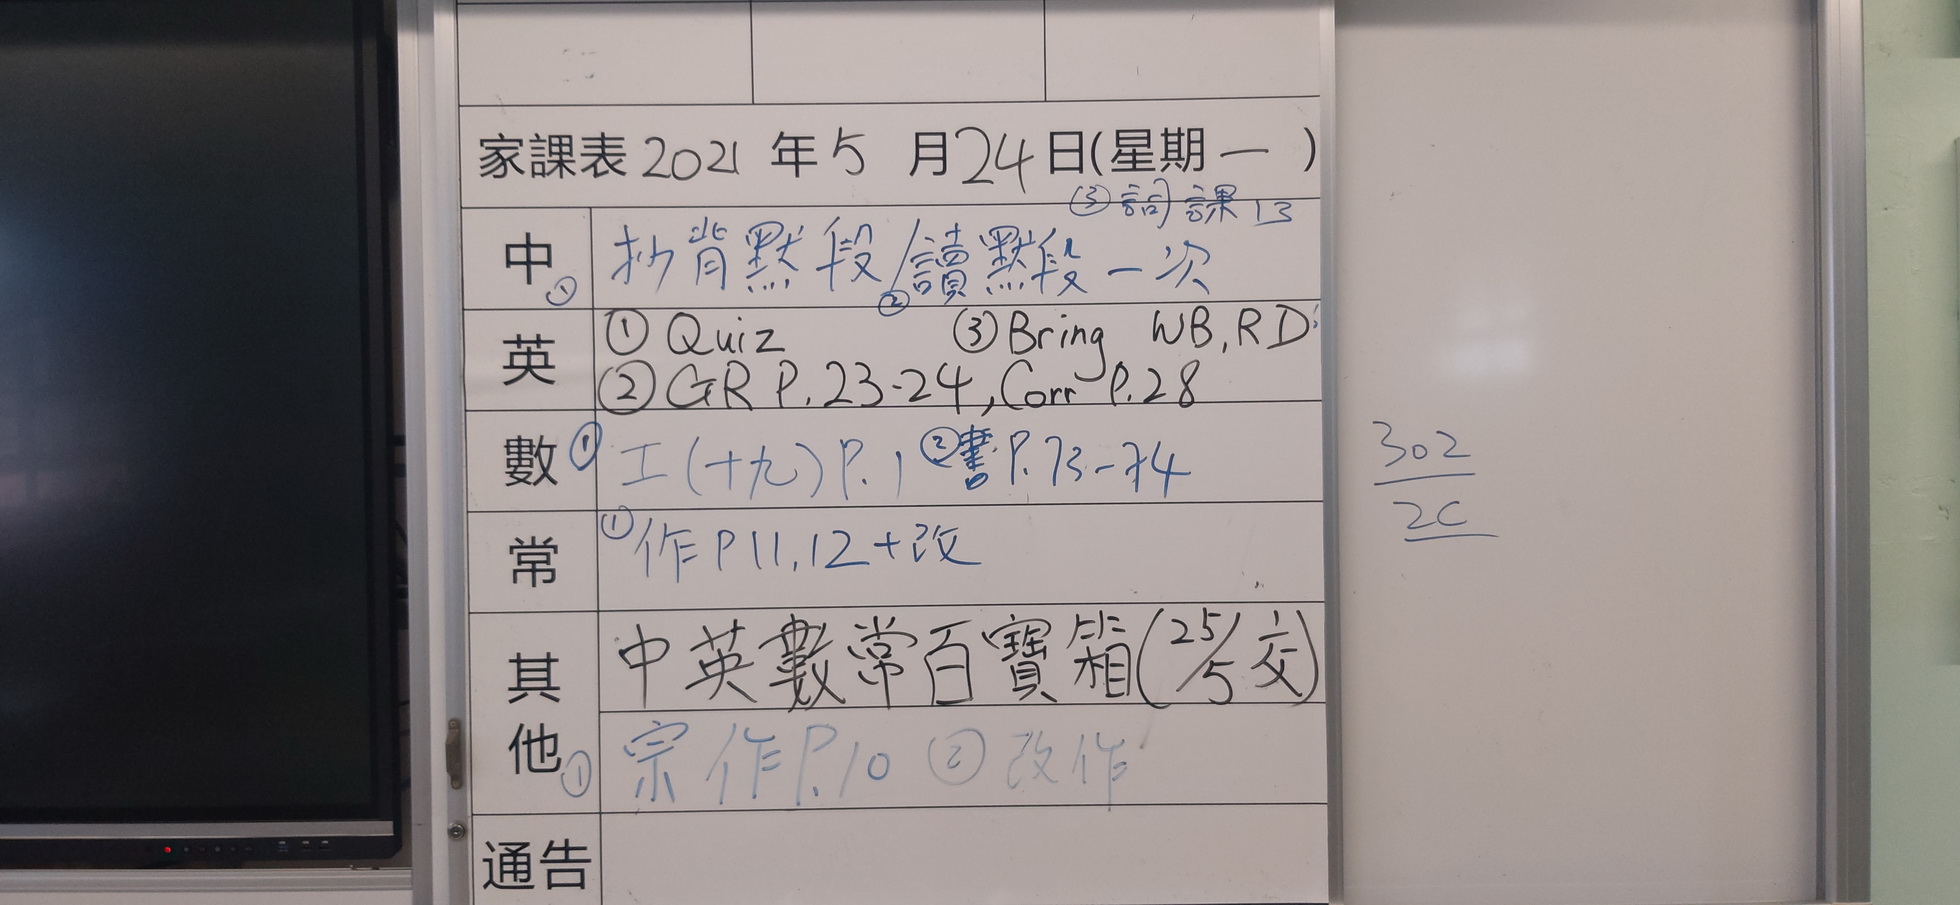 家課表 2021 年 5 月 24 日(星期一)
③ 詞課 13
中 ① 抄背默段/② 讀默段一次
英 ① Quiz ③ Bring WB, RD
② GR P.23-24, Corr P.28
數 ① 工(十九) P.1 ② 書 P.73-74
常 ① 作 P11,12+改
其他 中英數常百寶箱(25/5交)
① 宗作 P.10 ② 改作
通告
302
2C